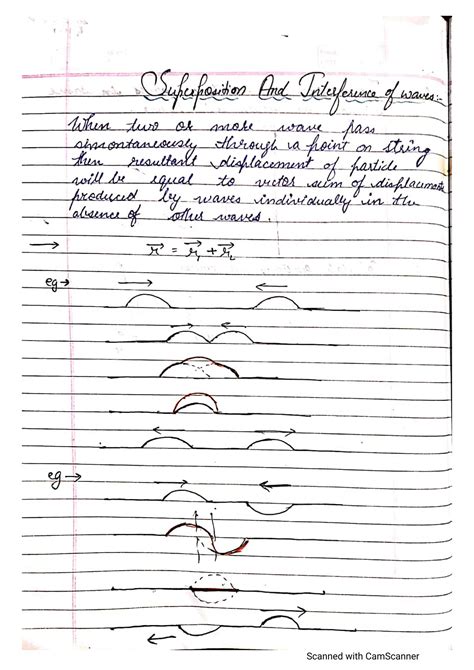 Superposition And Interference of waves:-
When two or more wave pass
simontaneously through a point on string
then resultant displacement of particle
will be equal to vector sum of displacements
produced by waves individually in the
absence of other waves.
→ r⃗ = r⃗₁ + r⃗₂
eg→
eg→
Scanned with CamScanner